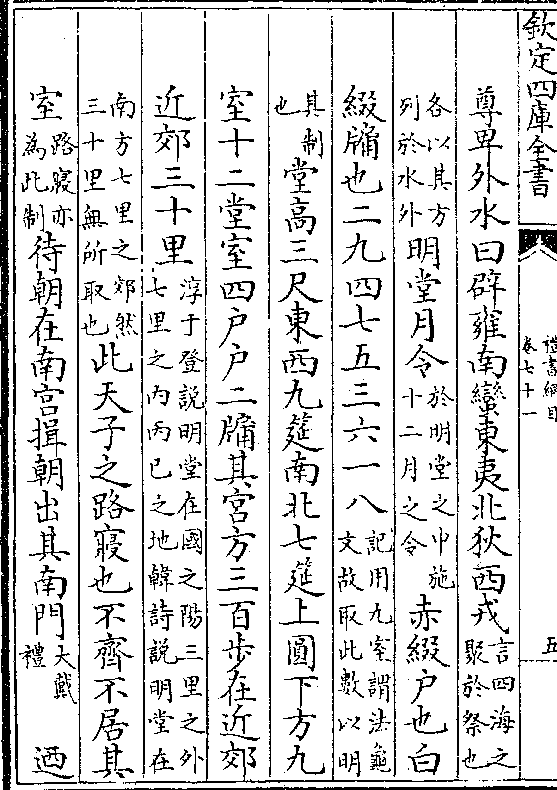 欽定四庫全書
禮書綱目
卷七十一
五
尊卑外水曰辟雍南蠻東夷北狄西戎言四海之聚於祭也
各以其方列於水外明堂月令於明堂之中施十二月之令赤綴户也白
綴牖也二九四七五三六一八記用九室謂法龜文故取此數以明
其制也堂高三尺東西九筵南北七筵上圓下方九
室十二堂室四户户二牖其宫方三百步在近郊
近郊三十里淳于登説明堂在國之陽三里之外七里之内丙巳之地韓詩説明堂在
南方七里之郊然三十里無所取也此天子之路寢也不齊不居其
室路寢亦為此制待朝在南宫揖朝出其南門大戴禮 迺